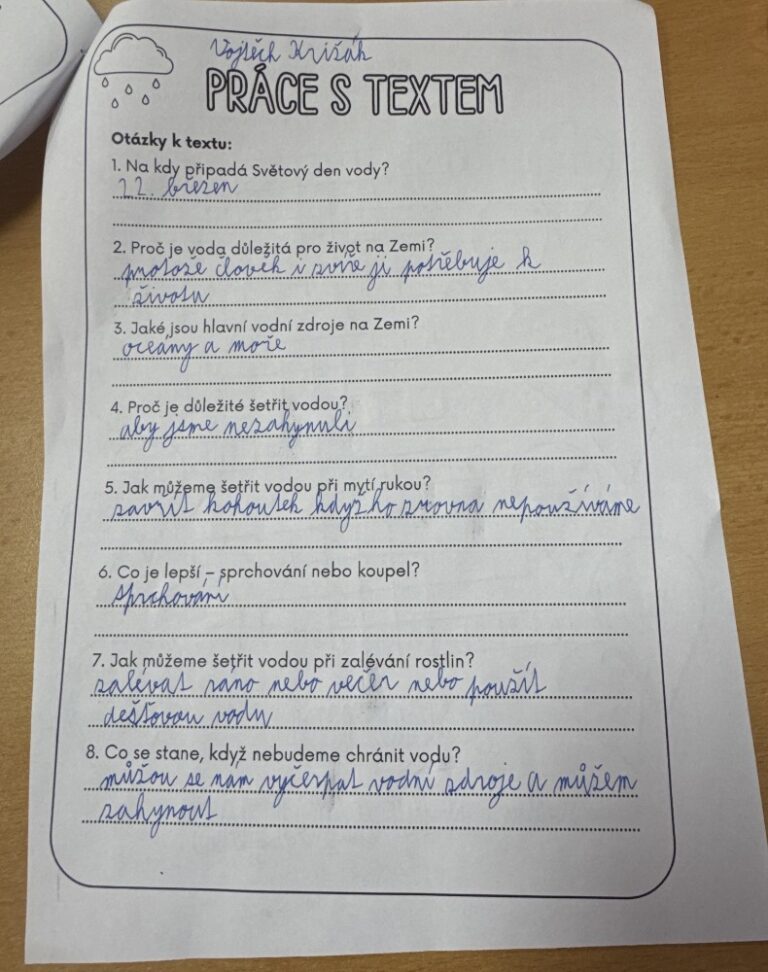 Vojtěch Križák
PRÁCE S TEXTEM
Otázky k textu:
1. Na kdy připadá Světový den vody?
22. březen
2. Proč je voda důležitá pro život na Zemi?
protože člověk i zvíře ji potřebuje k
životu
3. Jaké jsou hlavní vodní zdroje na Zemi?
oceány a moře
4. Proč je důležité šetřit vodou?
aby jsme nezahynuli
5. Jak můžeme šetřit vodou při mytí rukou?
zavřít kohoutek když ho zrovna nepoužíváme
6. Co je lepší – sprchování nebo koupel?
sprchování
7. Jak můžeme šetřit vodou při zalévání rostlin?
zalévat rano nebo večer nebo použít
dešťovou vodu
8. Co se stane, když nebudeme chránit vodu?
můžou se nam vyčerpat vodní zdroje a můžem
zahynout